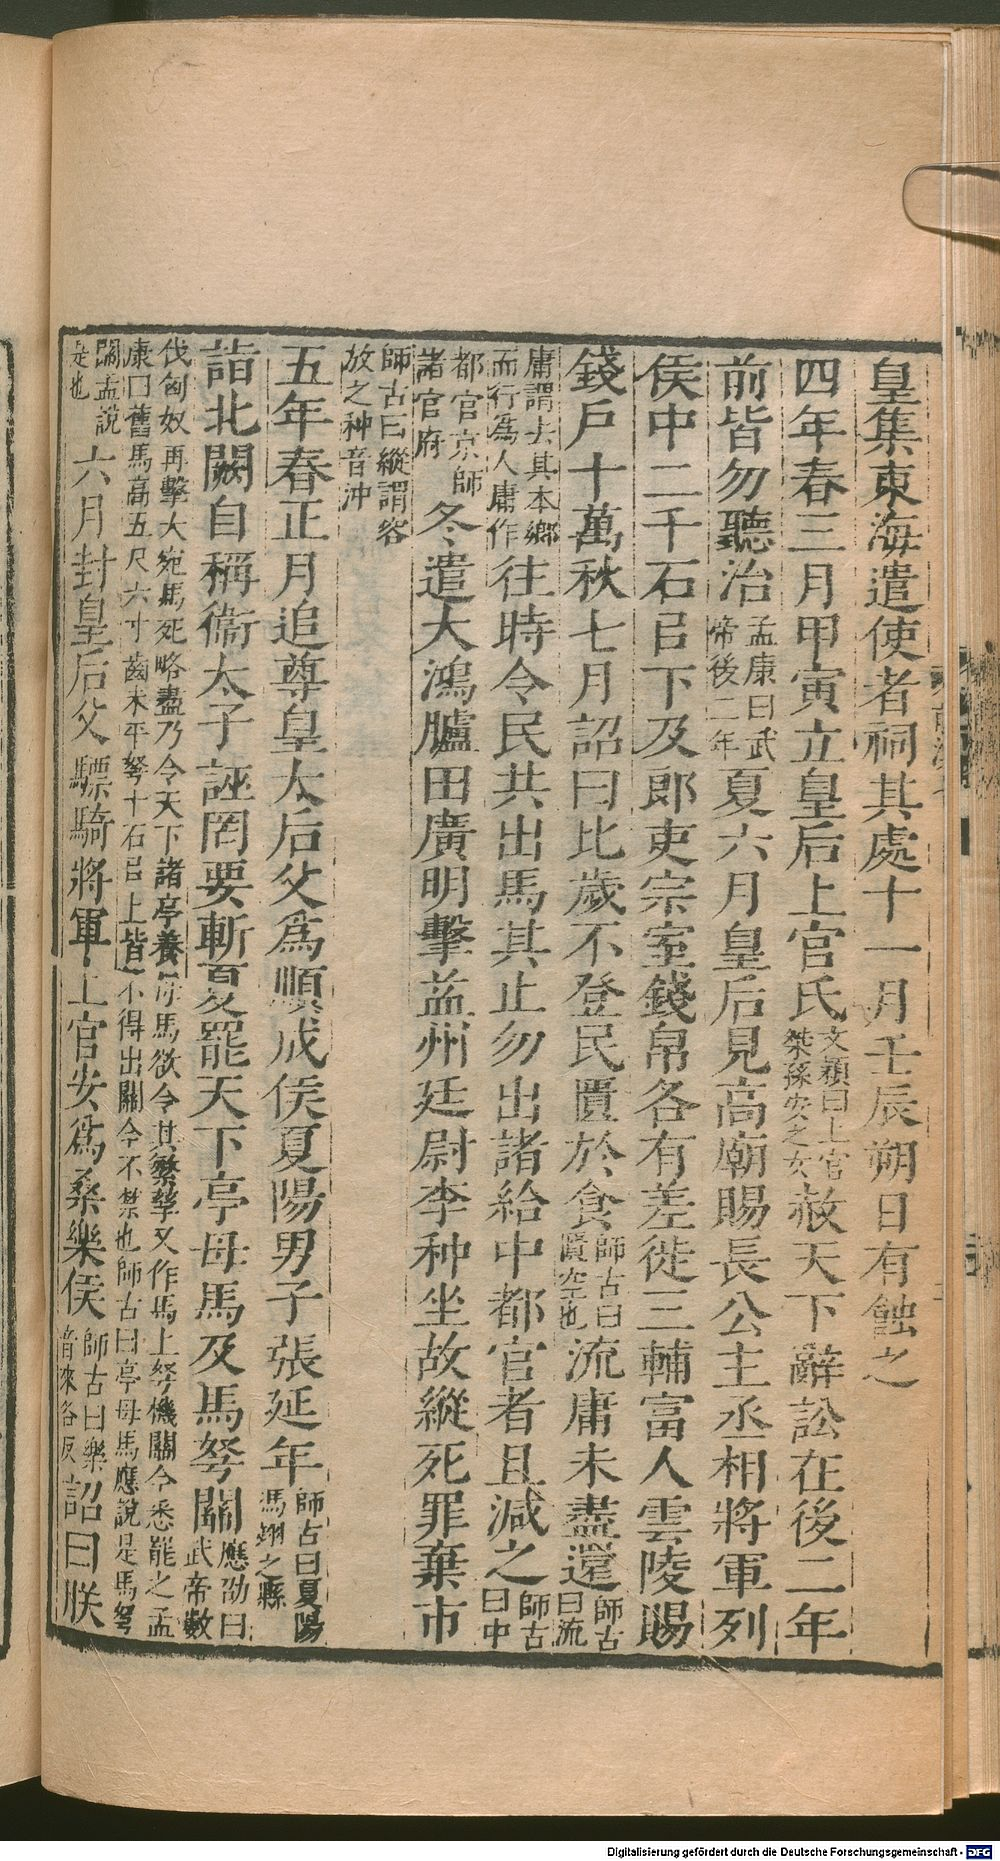 皇集東海遣使者祠其處十一月壬辰朔日有蝕之
四年春三月甲寅立皇后上官氏文穎曰上官桀孫安之女赦天下辭訟在後二年
前皆勿聽治孟康曰武帝後二年夏六月皇后見高廟賜長公主丞相將軍列
侯中二千石㠯下及郎吏宗室錢帛各有差徙三輔富人雲陵賜
錢戶十萬秋七月詔曰比歲不登民匱於食師古曰匱空也流庸未盡還師古曰流
庸謂去其本鄉而行爲人庸作往時令民共出馬其止勿出諸給中都官者且減之師古曰中
都官京師諸官府冬遣大鴻臚田廣明擊益州廷尉李种坐故縱死罪棄市
師古曰縱謂容放之种音沖
五年春正月追尊皇太后父爲順成侯夏陽男子張延年師古曰夏陽馮翊之縣
詣北闕自稱衞太子誣罔要斬夏罷天下亭母馬及馬弩關應劭曰武帝數
伐匈奴再擊大宛馬死略盡乃令天下諸亭養母馬欲令其繁孳又作馬上弩機關今悉罷之孟
康曰舊馬高五尺六寸齒未平弩十石㠯上皆不得出關今不禁也師古曰亭母馬應說是馬弩
關孟說是也六月封皇后父驃騎將軍上官安爲桑樂侯師古曰樂音來各反詔曰朕
Digitalisierung gefördert durch die Deutsche Forschungsgemeinschaft - DFG